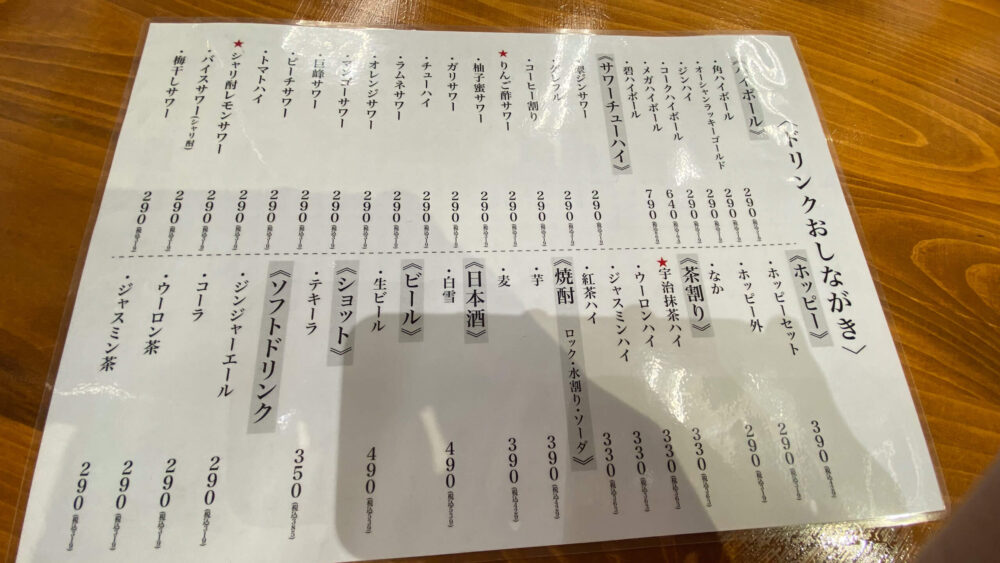 〈ドリンクおしながき〉
・角ハイボール 290
・オーシャンラッキーゴールド 290
・ジンハイ 290
・コークハイボール 290
・メガハイボール 640
・碧ハイボール 790
《サワーチューハイ》
290
290
・コーヒー割り 290
★・りんご酢サワー 290
・柚子蜜サワー 290
・ガリサワー 290
・チューハイ 290
・ラムネサワー 290
・オレンジサワー 290
・マンゴーサワー 290
・巨峰サワー 290
・ピーチサワー 290
・トマトハイ 290
★・シャリ酎レモンサワー 290
・バイスサワー(シャリ酎) 290
・梅干しサワー 290
《ホッピー》
・ホッピーセット 390
・ホッピー外 290
・なか 290
《茶割り》
★・宇治抹茶ハイ 330
・ウーロンハイ 330
・ジャスミンハイ 330
・紅茶ハイ 330
《焼酎 ロック・水割り・ソーダ》
・芋 390
・麦 390
《日本酒》
・白雪 490
《ビール》
・生ビール 490
《ショット》
・テキーラ 350
《ソフトドリンク
・ジンジャーエール 290
・コーラ 290
・ウーロン茶 290
・ジャスミン茶 290